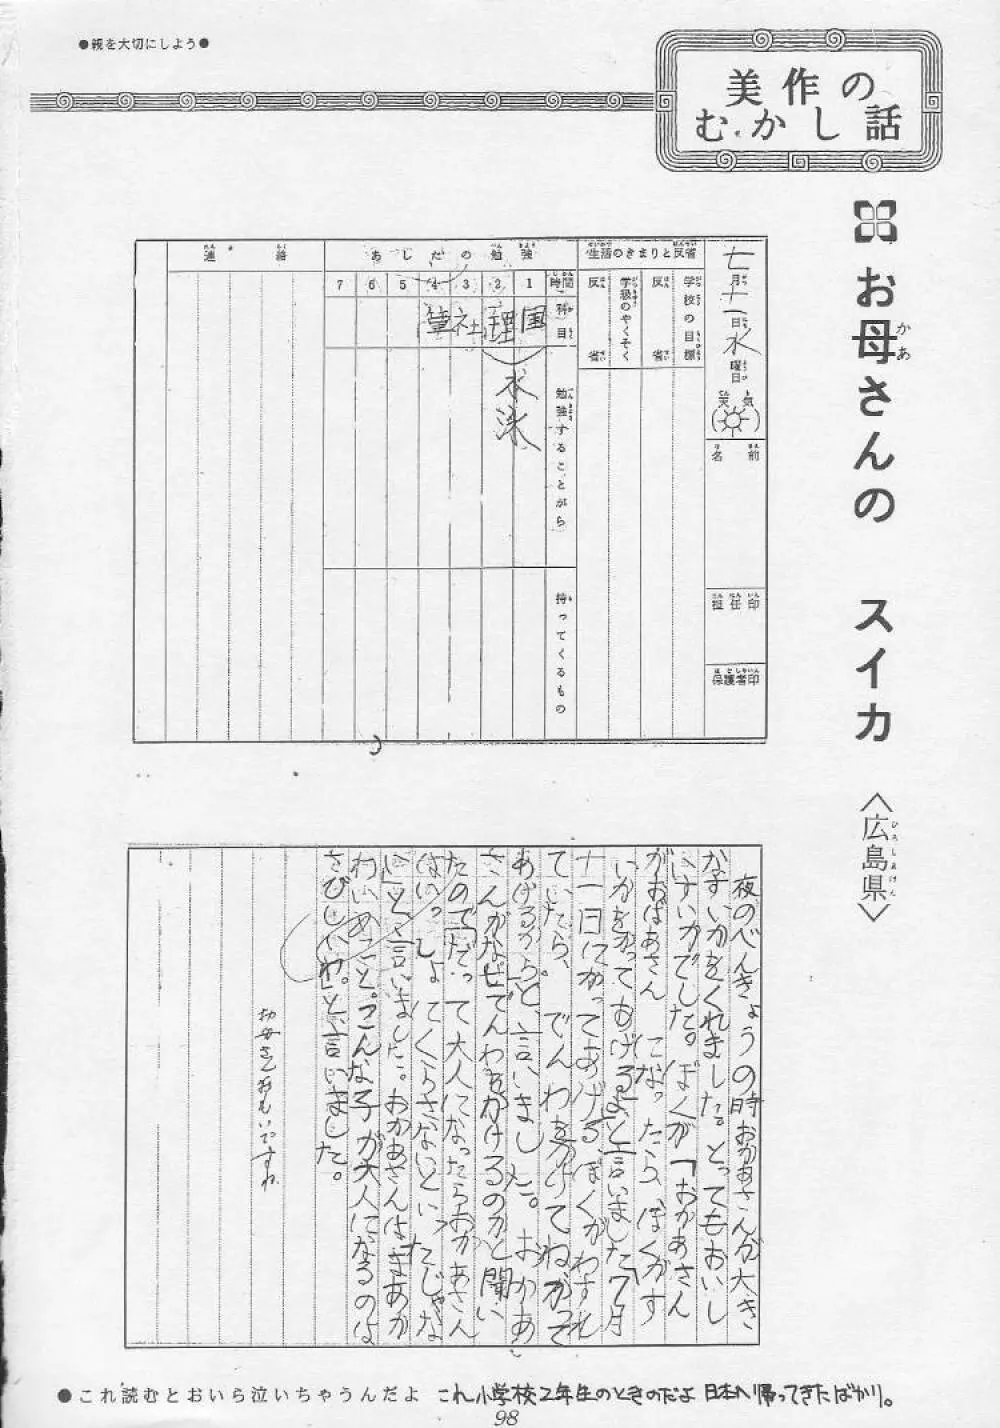 ●親を大切にしよう●
美作の
むかし話
お母さんの スイカ
かあ
〈広島県〉
ひろしまけん
七月十一日水曜日
天気
名前
担任印
保護者印
生活のきまりと反省
学校の目標
反省
学級のやくそく
反省
あしたの勉強
時間 1 2 3 4 5 6 7
科目
国 理 社 筆
勉強することがら
水泳
持ってくるもの
連絡
夜のべんきょうの時おかあさんが大き
なすいかをくれました。とってもおいし
いすいかでした。ぼくが「おかあさん
がおばあさんになったら、ぼくがす
いかをかってあげるよと言いました7月
十一日にかってあげる、ぼくがわすれ
ていたら、でんわをかけてねかって
あげるから」と、言いました。おかあ
さんがなぜでんわをかけるのかと聞い
たので「だって大人になったらおかあさん
はいっしょにくらさないといったじゃな
い」と言いました。おかあさんはまあか
わいいこと。こんな子が大人になるのは
さびしいわ」と、言いました。
お母さんおもいですね
●これ読むとおいら泣いちゃうんだよ これ小学校2年生のときのだよ 日本へ帰ってきたばかり。
98